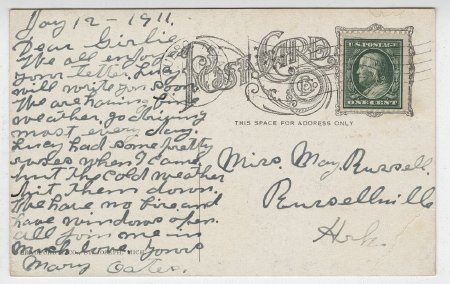 Jay 12 - 1911.
Dear Girlie
We all enjoy
your letter, Lucy
will write you soon
We are having fine
weather, go driving
most every day.
Lucy had some pretty
roses when I came,
but the cold weather
hit them down.
We have no fire and
have windows open.
all join me in
much love, yours
Mary Oates.
POST CARD
U.S. POSTAGE
ONE CENT
THIS SPACE FOR ADDRESS ONLY
Miss. May. Russell.
Russellville
Ark.